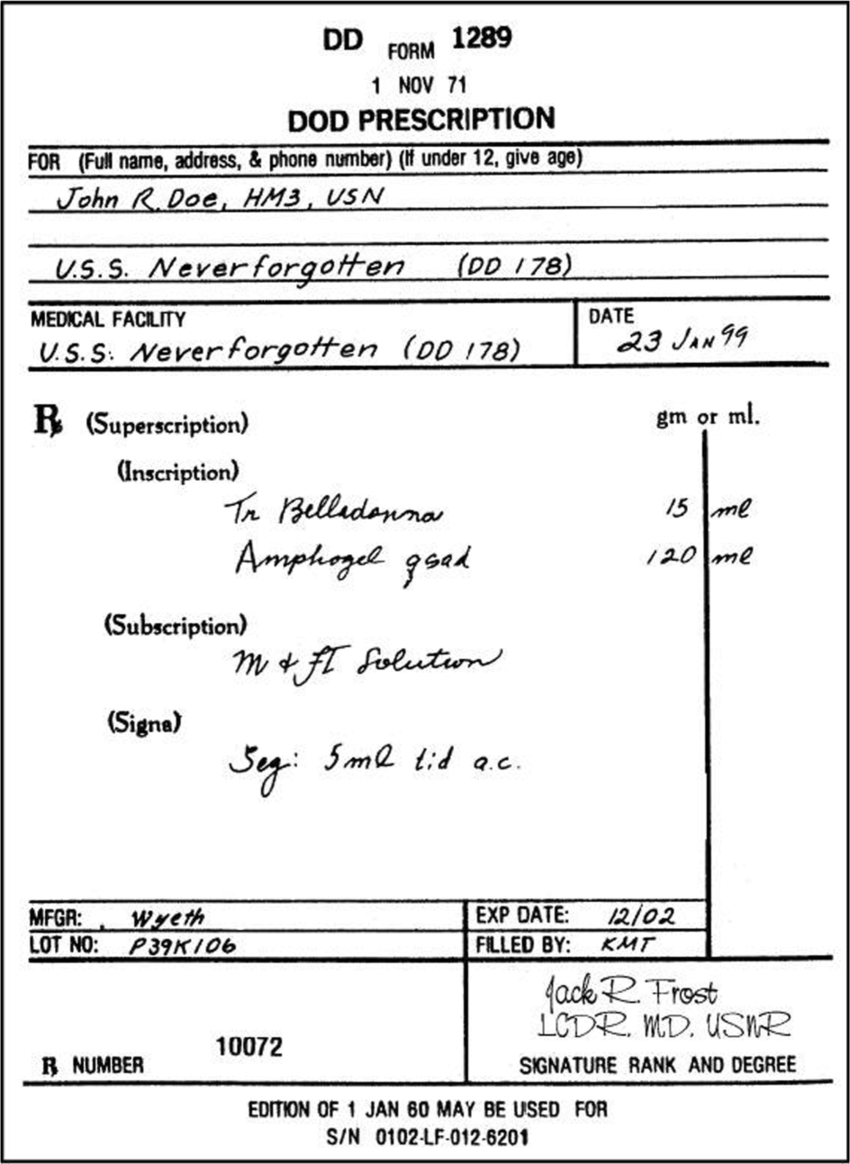 DD FORM 1289
1 NOV 71
DOD PRESCRIPTION
FOR (Full name, address, & phone number) (If under 12, give age)
John R. Doe, HM3, USN
U.S.S. Neverforgotten (DD 178)
MEDICAL FACILITY
U.S.S. Neverforgotten (DD 178)
DATE
23 JAN 99
℞ (Superscription) gm or ml.
(Inscription)
Tr Belladonna 15 ml
Amphogel qsad 120 ml
(Subscription)
M & ft Solution
(Signa)
Sig: 5 ml tid a.c.
MFGR: Wyeth EXP DATE: 12/02
LOT NO: P39K106 FILLED BY: KMT
Jack R. Frost
LCDR, MD, USNR
10072
℞ NUMBER SIGNATURE RANK AND DEGREE
EDITION OF 1 JAN 60 MAY BE USED FOR
S/N 0102-LF-012-6201